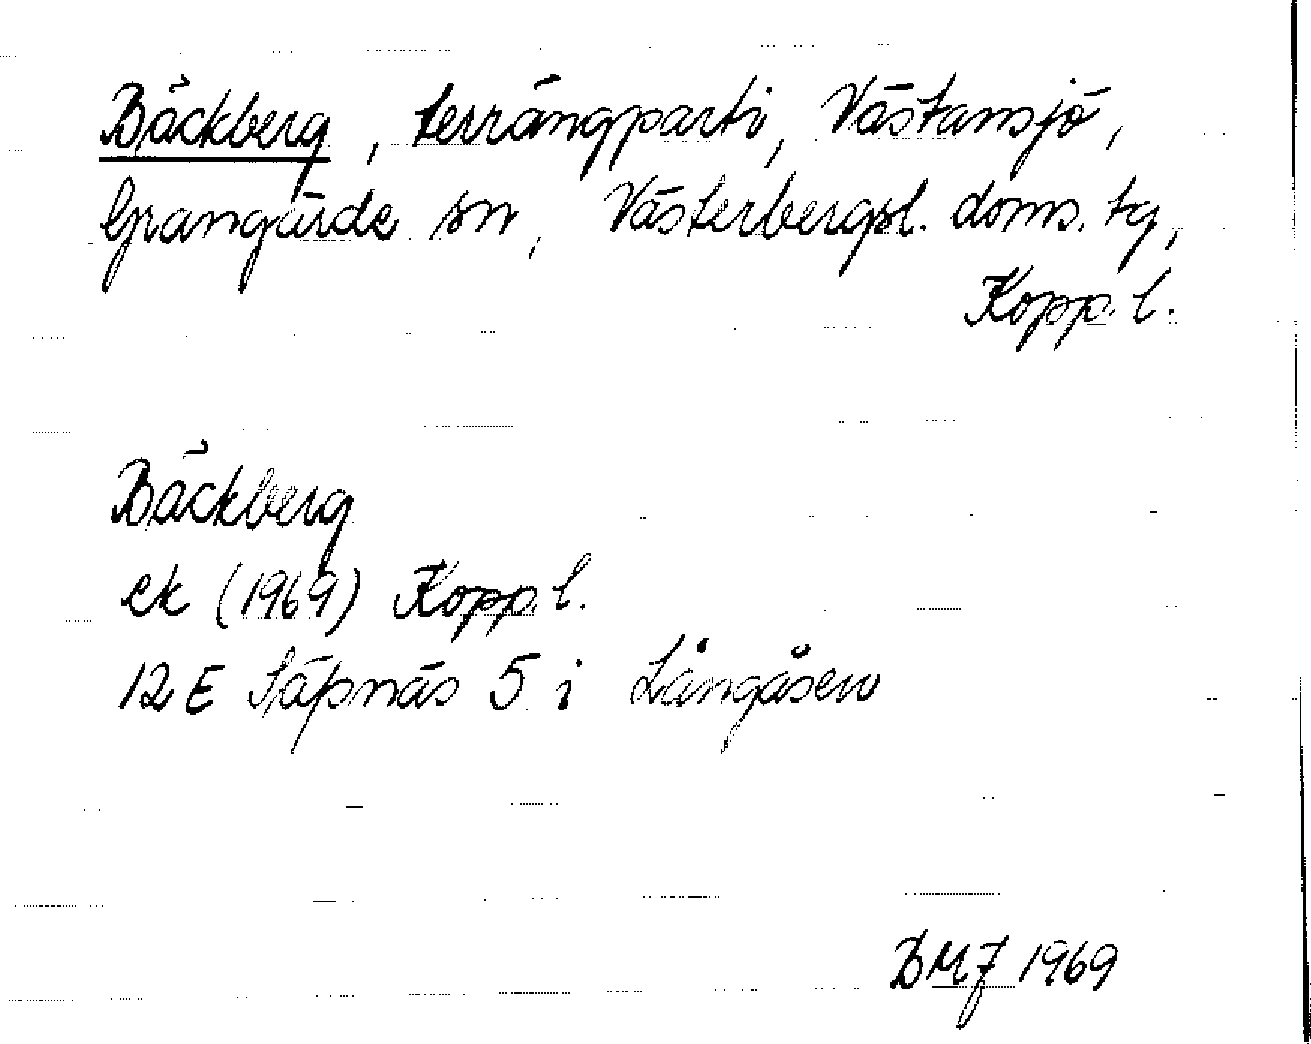 Bäckberg, terrängparti, Västansjö,
Grangärde sn, Västerbergsl. doms. tg,
Kopp. l.
Bäckberg
ek (1969) Kopp. l.
12 E Säfsnäs 5 i Långåsen
BMJ 1969